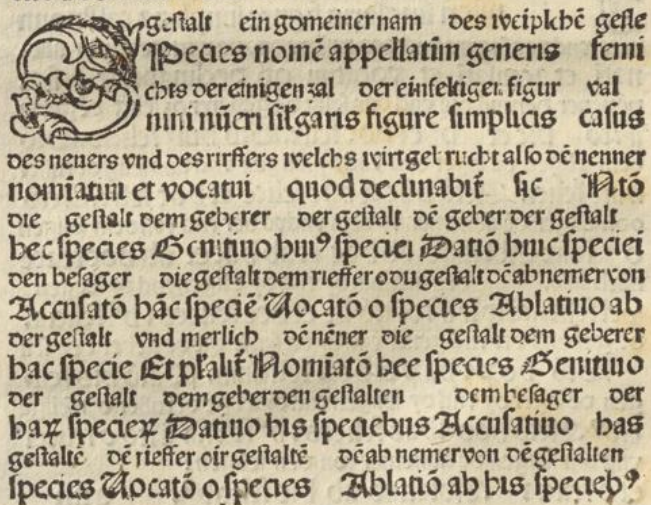 gestalt ein gomeiner nam des weiplichē gesle
Species nomē appellatiuī generis femi
chts der einigen zal der einfeltigen figur val
nini nūeri siĺgaris figure simplicis casus
des neners vnd des rieffers welchs wirt gebrucht also dē nenner
nomiatiui et vocatiui quod declinabit̄ sic Ntō
die gestalt dem geberer der gestalt dē geber der gestalt
hec species Genitiuo huiꝰ speciei Datiō huic speciei
den besager die gestalt dem rieffer o du gestalt dē abnemer von
Accusatō hāc speciē Uocatō o species Ablatiuo ab
der gestalt vnd merlich dē nēner die gestalt dem geberer
hac specie Et pĺalit̄ Nomiatō hee species Genitiuo
der gestalt dem geber den gestalten dem besager der
haꝝ specieꝝ Datiuo his speciebus Accusatiuo has
gestaltē dē rieffer o ir gestaltē dē ab nemer von dē gestalten
species Uocatō o species Ablatiō ab his speciebꝰ